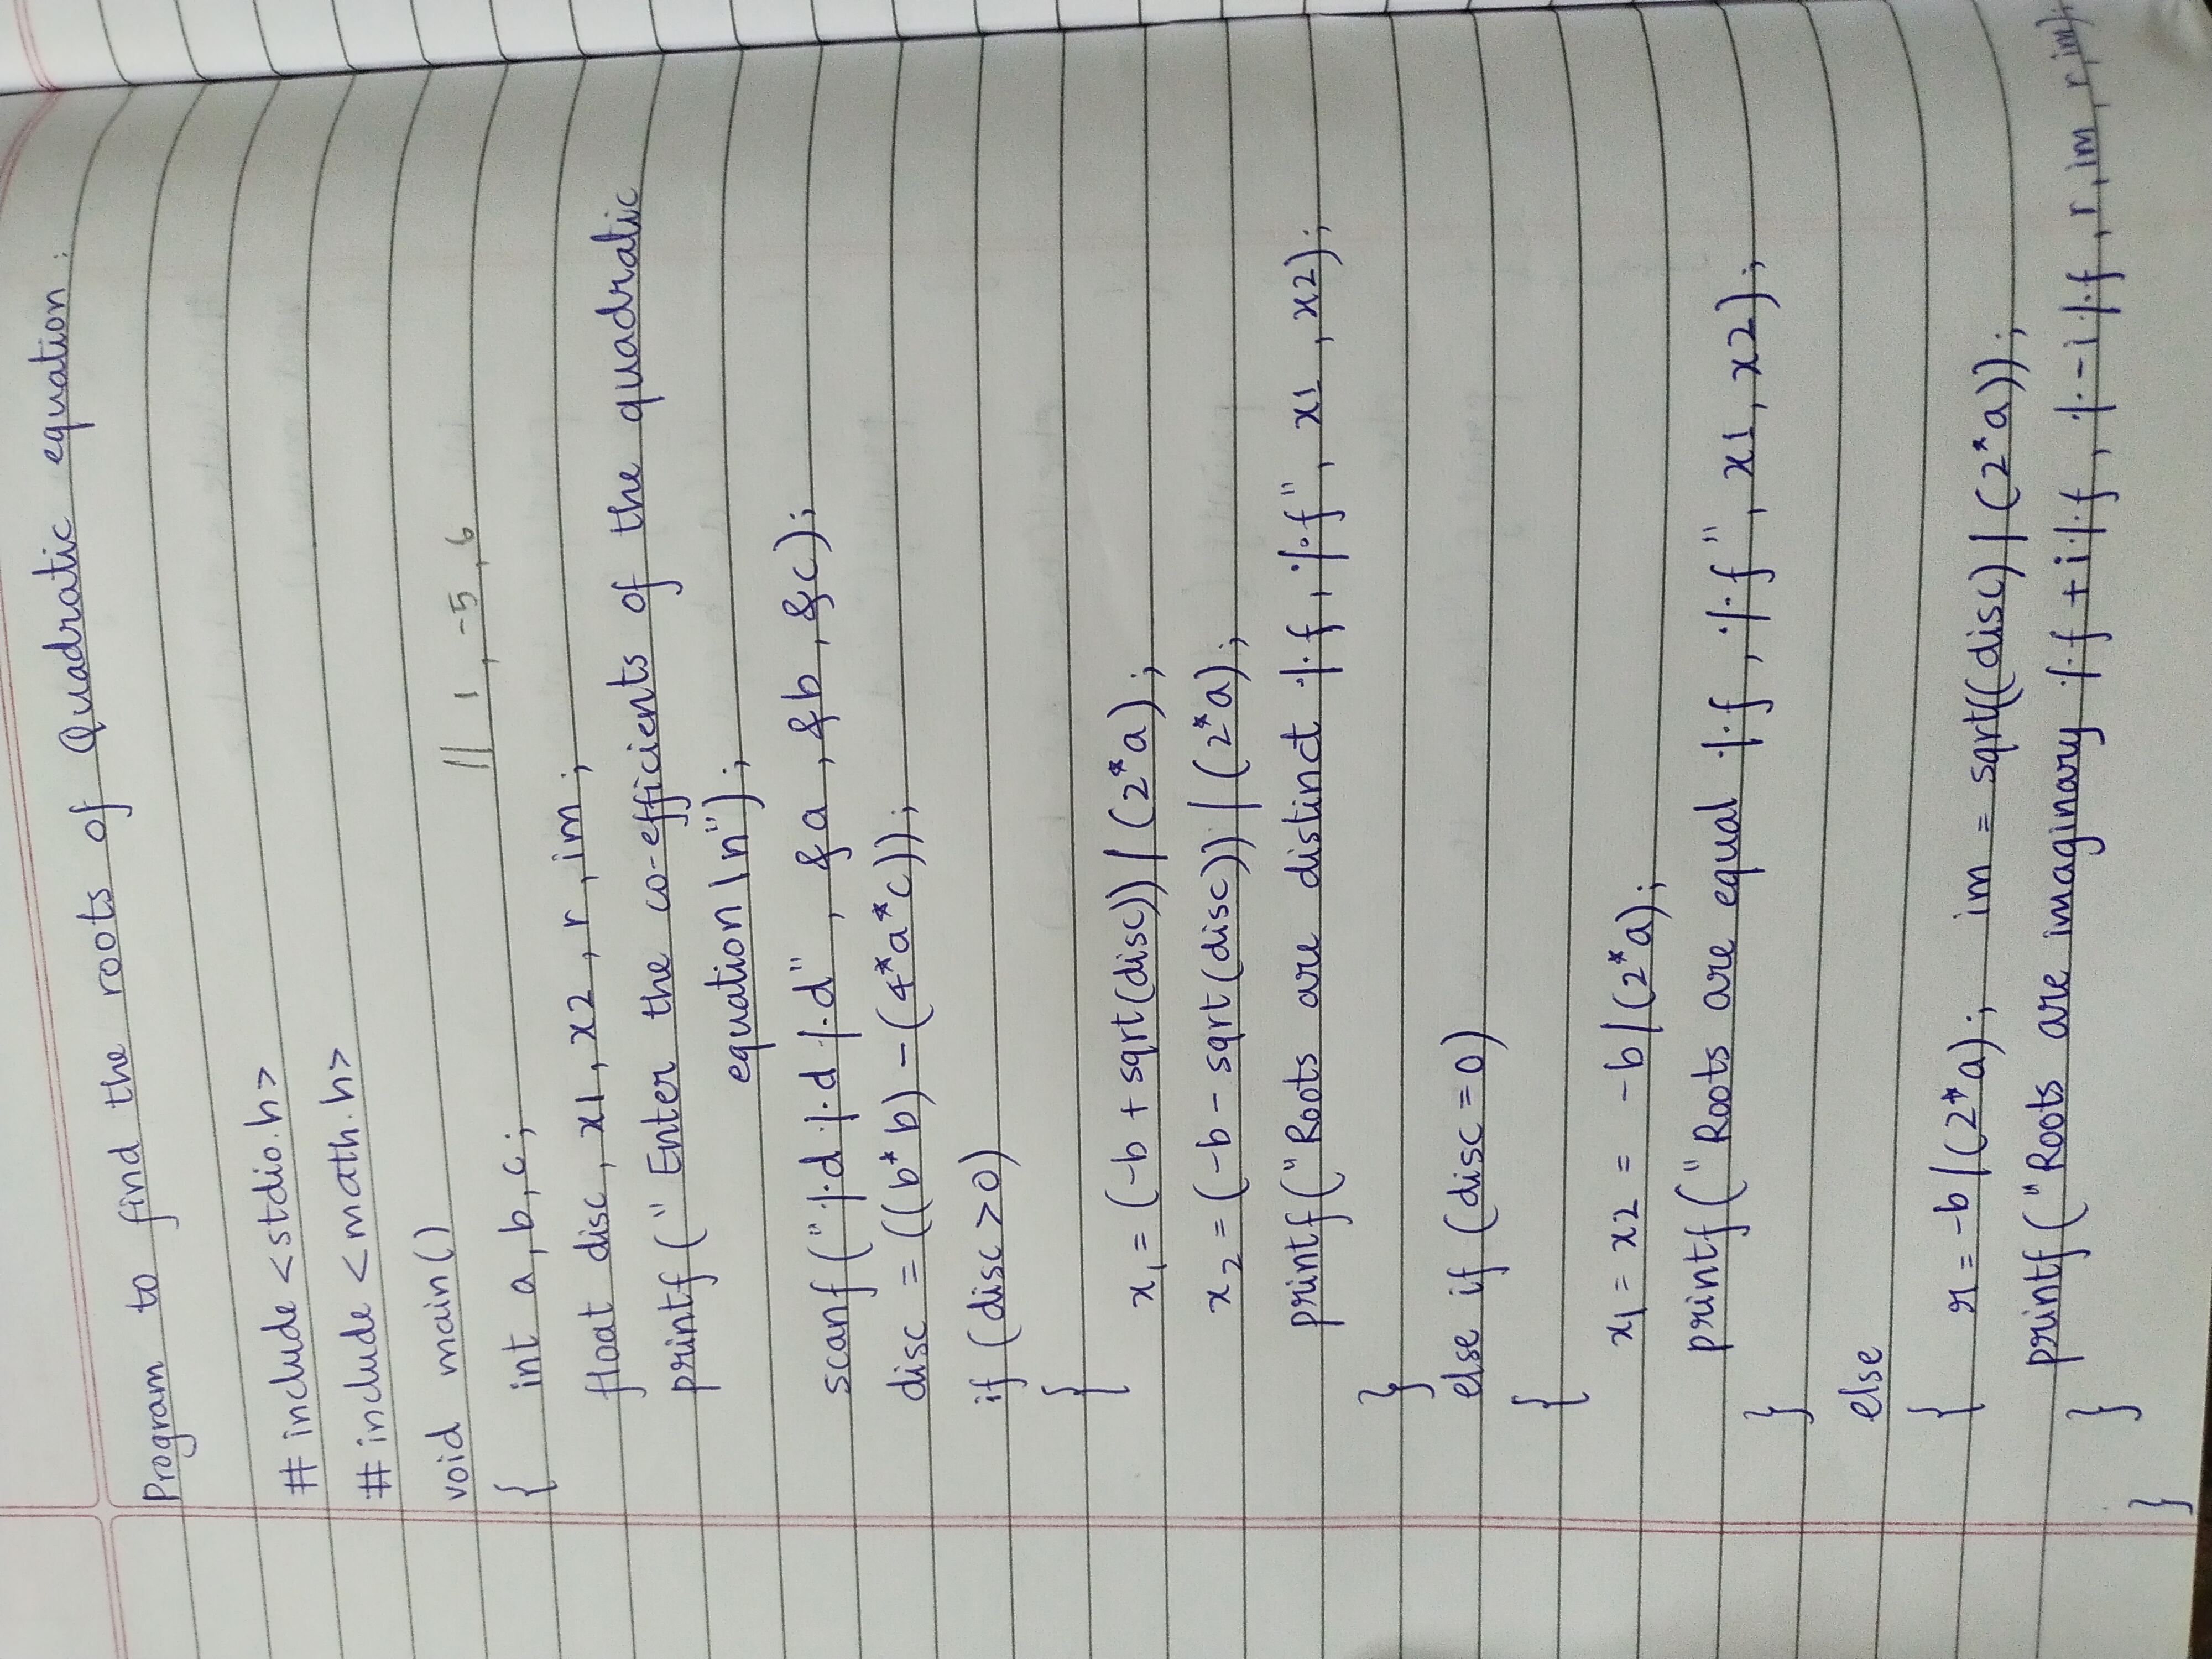 Program to find the roots of Quadratic equation:
#include <stdio.h>
#include <math.h>
void main()
// 1, -5, 6
{ int a, b, c;
float disc, x1, x2, r, im;
printf("Enter the co-efficients of the quadratic
equation \n");
scanf("%d %d %d", &a, &b, &c);
disc = ((b*b) - (4*a*c));
if (disc > 0)
{
x1 = (-b + sqrt(disc)) / (2*a);
x2 = (-b - sqrt(disc)) / (2*a);
printf("Roots are distinct %f, %f", x1, x2);
}
else if (disc = 0)
{
x1 = x2 = -b/(2*a);
printf("Roots are equal %f, %f", x1, x2);
}
else
{ r = -b/(2*a); im = sqrt((disc) / (2*a));
printf("Roots are imaginary %f + i%f, % - i%f, r, im, r, im);
}
}